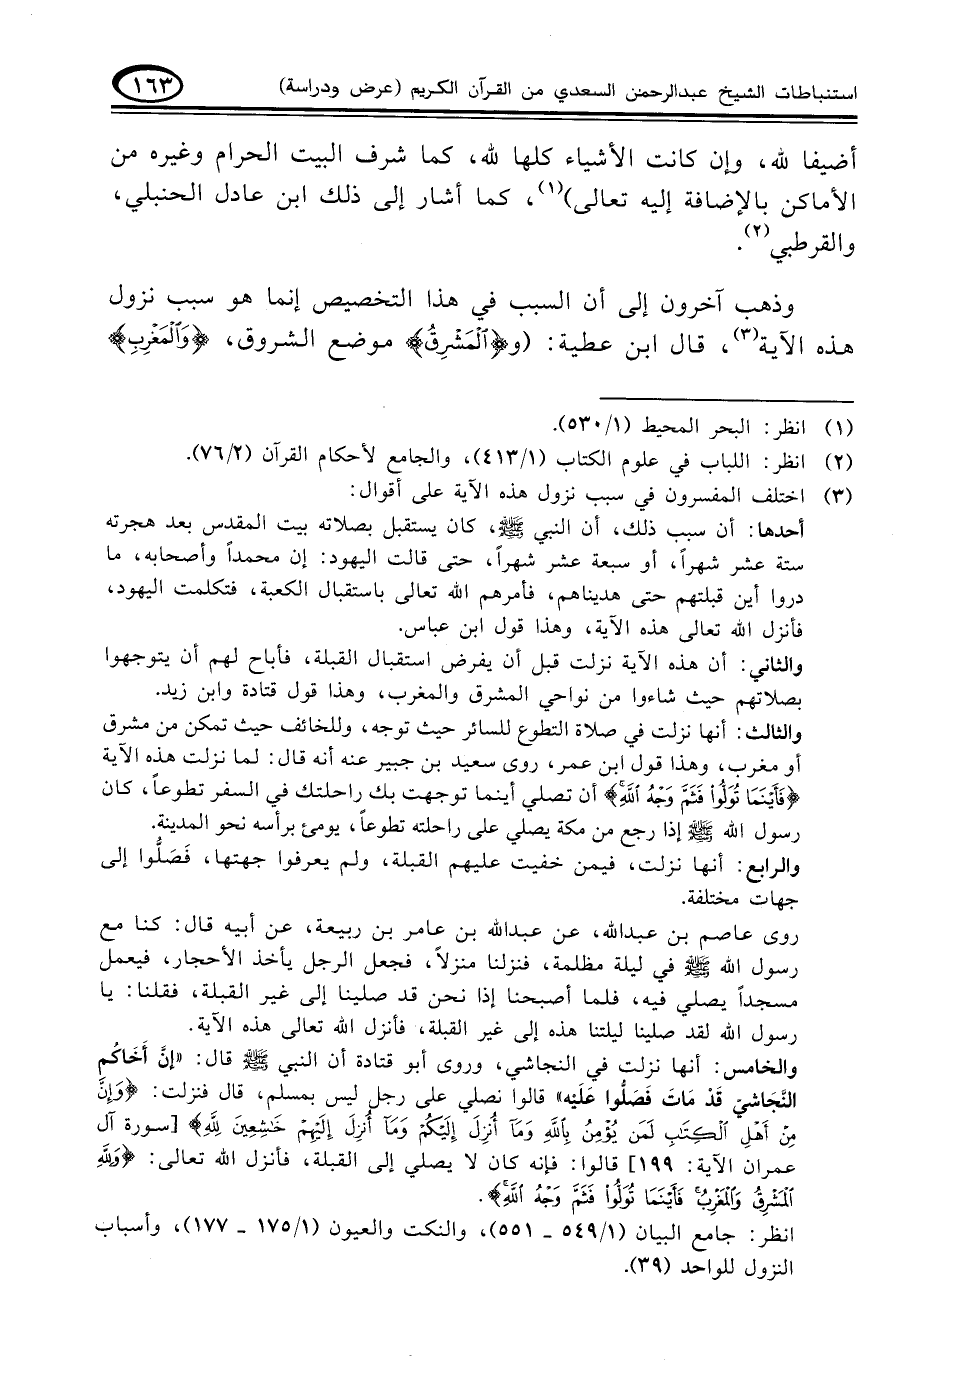 استنباطات الشيخ عبدالرحمن السعدي من القرآن الكريم (عرض ودراسة)
١٦٣
أضيفا لله، وإن كانت الأشياء كلها لله، كما شرف البيت الحرام وغيره من
الأماكن بالإضافة إليه تعالى)(١)، كما أشار إلى ذلك ابن عادل الحنبلي،
والقرطبي(٢).
وذهب آخرون إلى أن السبب في هذا التخصيص إنما هو سبب نزول
هذه الآية(٣)، قال ابن عطية: (و﴿ٱلْمَشْرِقُ﴾ موضع الشروق، ﴿وَٱلْمَغْرِبِ﴾
(١) انظر: البحر المحيط (٥٣٠/١).
(٢) انظر: اللباب في علوم الكتاب (٤١٣/١)، والجامع لأحكام القرآن (٧٦/٢).
(٣) اختلف المفسرون في سبب نزول هذه الآية على أقوال:
أحدها: أن سبب ذلك، أن النبي ﷺ، كان يستقبل بصلاته بيت المقدس بعد هجرته
ستة عشر شهراً، أو سبعة عشر شهراً، حتى قالت اليهود: إن محمداً وأصحابه، ما
دروا أين قبلتهم حتى هديناهم، فأمرهم الله تعالى باستقبال الكعبة، فتكلمت اليهود،
فأنزل الله تعالى هذه الآية، وهذا قول ابن عباس.
والثاني: أن هذه الآية نزلت قبل أن يفرض استقبال القبلة، فأباح لهم أن يتوجهوا
بصلاتهم حيث شاءوا من نواحي المشرق والمغرب، وهذا قول قتادة وابن زيد.
والثالث: أنها نزلت في صلاة التطوع للسائر حيث توجه، وللخائف حيث تمكن من مشرق
أو مغرب، وهذا قول ابن عمر، روى سعيد بن جبير عنه أنه قال: لما نزلت هذه الآية
﴿فَأَيْنَمَا تُوَلُّوا۟ فَثَمَّ وَجْهُ ٱللَّهِ﴾ أن تصلي أينما توجهت بك راحلتك في السفر تطوعاً، كان
رسول الله ﷺ إذا رجع من مكة يصلي على راحلته تطوعاً، يومئ برأسه نحو المدينة.
والرابع: أنها نزلت، فيمن خفيت عليهم القبلة، ولم يعرفوا جهتها، فَصَلُّوا إلى
جهات مختلفة.
روى عاصم بن عبدالله، عن عبدالله بن عامر بن ربيعة، عن أبيه قال: كنا مع
رسول الله ﷺ في ليلة مظلمة، فنزلنا منزلاً، فجعل الرجل يأخذ الأحجار، فيعمل
مسجداً يصلي فيه، فلما أصبحنا إذا نحن قد صلينا إلى غير القبلة، فقلنا: يا
رسول الله لقد صلينا ليلتنا هذه إلى غير القبلة، فأنزل الله تعالى هذه الآية.
والخامس: أنها نزلت في النجاشي، وروى أبو قتادة أن النبي ﷺ قال: «إنَّ أَخَاكُم
النَّجَاشيّ قَدْ مَاتَ فَصَلُّوا عَلَيْه» قالوا نصلي على رجل ليس بمسلم، قال فنزلت: ﴿وَإِنَّ
مِنْ أَهْلِ ٱلْكِتَٰبِ لَمَن يُؤْمِنُ بِٱللَّهِ وَمَآ أُنزِلَ إِلَيْكُمْ وَمَآ أُنزِلَ إِلَيْهِمْ خَٰشِعِينَ لِلَّهِ﴾ [سورة آل
عمران الآية: ١٩٩] قالوا: فإنه كان لا يصلي إلى القبلة، فأنزل الله تعالى: ﴿وَلِلَّهِ
ٱلْمَشْرِقُ وَٱلْمَغْرِبُ فَأَيْنَمَا تُوَلُّوا۟ فَثَمَّ وَجْهُ ٱللَّهِ﴾.
انظر: جامع البيان (٥٤٩/١ ـ ٥٥١)، والنكت والعيون (١٧٥/١ ـ ١٧٧)، وأسباب
النزول للواحد (٣٩).